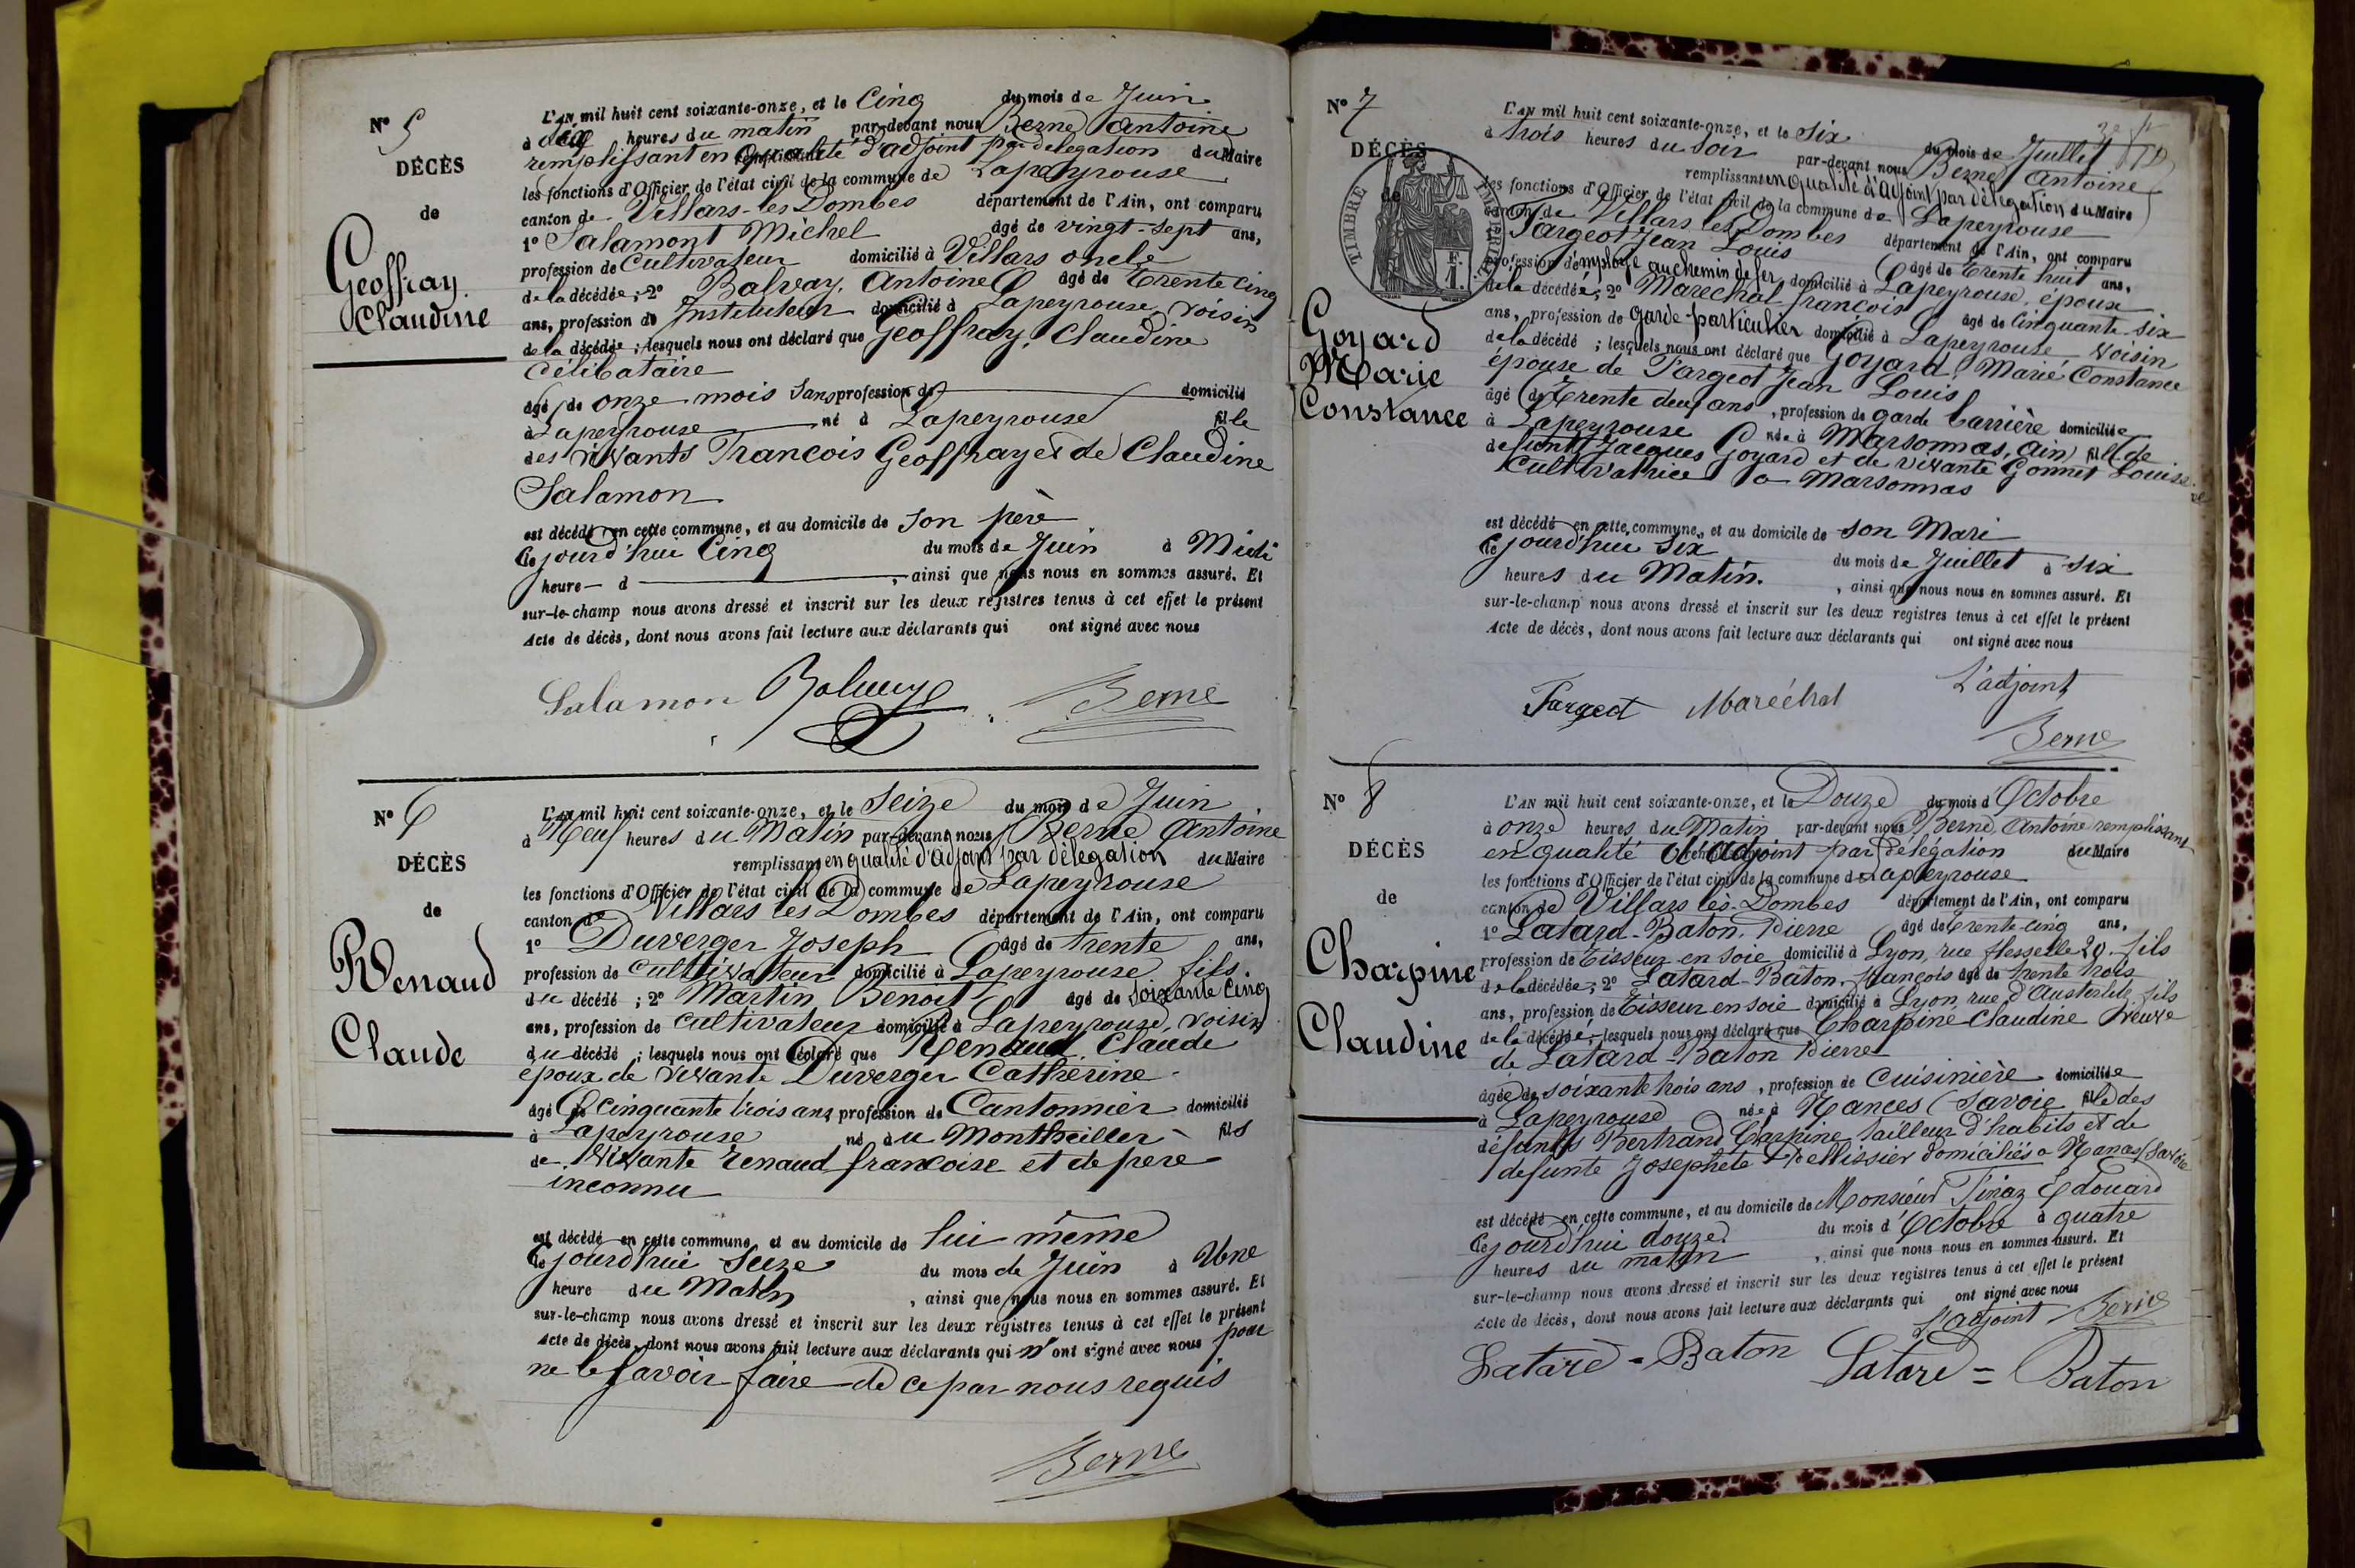 N° 5
DÉCÈS
de
Geoffray
Claudine
L'AN mil huit cent soixante-onze, et le Cinq du mois de Juin
à heures du matin par-devant nous Berne Antoine
remplissant en qualité d'adjoint par délégation du Maire
les fonctions d'Officier de l'état civil de la commune de Lapeyrouse
canton de Villars-les Dombes département de l'Ain, ont comparu
1° Salamont Michel âgé de vingt-sept ans,
profession de Cultivateur domicilié à Villars oncle
de la décédée ; 2° Balvay, Antoine âgé de Trente cinq
ans, profession de Instituteur domicilié à Lapeyrouse, voisin
de la décédée ; lesquels nous ont déclaré que Geoffray, Claudine
Célibataire
âgé de onze mois Sans profession de domicilié
à Lapeyrouse né à Lapeyrouse fille
des vivants François Geoffray et de Claudine
Salamon
est décédé en cette commune, et au domicile de son père
le jourd'hui Cinq du mois de Juin à Midi
heure d , ainsi que nous nous en sommes assuré. Et
sur-le-champ nous avons dressé et inscrit sur les deux registres tenus à cet effet le présent
Acte de décès, dont nous avons fait lecture aux déclarants qui ont signé avec nous
Salamon Balvay Berne
N° 6
DÉCÈS
de
Renaud
Claude
L'AN mil huit cent soixante-onze, et le Seize du mois de Juin
à Neuf heures du Matin par-devant nous Berne Antoine
remplissant en qualité d'adjoint par délégation du Maire
les fonctions d'Officier de l'état civil de la commune de Lapeyrouse
canton de Villars les Dombes département de l'Ain, ont comparu
1° Duverger Joseph âgé de trente ans,
profession de cultivateur domicilié à Lapeyrouse, fils
du décédé ; 2° Martin Benoit âgé de soixante cinq
ans, profession de cultivateur domicilié à Lapeyrouse, voisin
du décédé ; lesquels nous ont déclaré que Renaud, Claude
époux de vivante Duverger Catherine
âgé de cinquante trois ans, profession de Cantonnier domicilié
à Lapeyrouse né au Montheiller fils
de vivante Renaud françoise et de pere
inconnu
est décédé en cette commune, et au domicile de lui même
le jourd'hui Seize du mois de Juin à Une
heure du Matin , ainsi que nous nous en sommes assuré. Et
sur-le-champ nous avons dressé et inscrit sur les deux registres tenus à cet effet le présent
Acte de décès, dont nous avons fait lecture aux déclarants qui n'ont signé avec nous pour
ne le savoir faire de ce par nous requis
Berne
N° 7
DÉCÈS
de
TIMBRE IMPÉRIAL
F. 1.
Goyard
Marie
Constance
L'AN mil huit cent soixante-onze, et le Six du mois de Juillet
à trois heures du soir par-devant nous Berne Antoine
remplissant en qualité d'adjoint par délégation du Maire
les fonctions d'Officier de l'état civil de la commune de Lapeyrouse
canton de Villars les Dombes département de l'Ain, ont comparu
Targeot Jean Louis âgé de Trente huit ans,
profession d'employé au chemin de fer, domicilié à Lapeyrouse, époux
de la décédée ; 2° Maréchal françois âgé de Cinquante-six
ans, profession de garde-particulier domicilié à Lapeyrouse voisin
de la décédé ; lesquels nous ont déclaré que Goyard, Marie Constance
épouse de Targeot Jean Louis
âgé de Trente deux ans , profession de garde barrière domiciliée
à Lapeyrouse née à Marsonnas, (Ain) fille de
defunt Jacques Goyard et de vivante Gonnet Louise
Cultivatrice à Marsonnas
est décédé en cette commune, et au domicile de son Mari
le jourd'hui Six du mois de Juillet à six
heures du Matin. , ainsi que nous nous en sommes assuré. Et
sur-le-champ nous avons dressé et inscrit sur les deux registres tenus à cet effet le présent
Acte de décès, dont nous avons fait lecture aux déclarants qui ont signé avec nous
L'adjoint
Targeot Maréchal
Berne
N° 8
DÉCÈS
de
Charpine
Claudine
L'AN mil huit cent soixante-onze, et le Douze du mois d'Octobre
à onze heures du Matin par-devant nous Berne, Antoine remplissant
en qualité d'adjoint par délégation du Maire
les fonctions d'Officier de l'état civil de la commune de Lapeyrouse
canton de Villars les-Dombes département de l'Ain, ont comparu
1° Latard-Baton, Pierre âgé de Trente-cinq ans,
profession de Tisseur en soie domicilié à Lyon, rue Flesselle 20. fils
de la décédée ; 2° Latard-Baton, François âgé de Trente trois
ans, profession de Tisseur en soie domicilié à Lyon, rue d'Austerlitz, fils
de la décédé ; lesquels nous ont déclaré que Charpine Claudine Veuve
de Latard-Baton Pierre
âgée de soixante trois ans , profession de Cuisinière domiciliée
à Lapeyrouse née à Nances (Savoie fille des
défunts Bertrand Charpine, tailleur d'habits et de
defunte Josephete Pellissier domiciliés à Nances (Savoie
est décédé en cette commune, et au domicile de Monsieur Edouard
le jourd'hui douze du mois d'Octobre à quatre
heures du matin , ainsi que nous nous en sommes assuré. Et
sur-le-champ nous avons dressé et inscrit sur les deux registres tenus à cet effet le présent
Acte de décès, dont nous avons fait lecture aux déclarants qui ont signé avec nous
L'adjoint Berne
Latard=Baton Latard=Baton